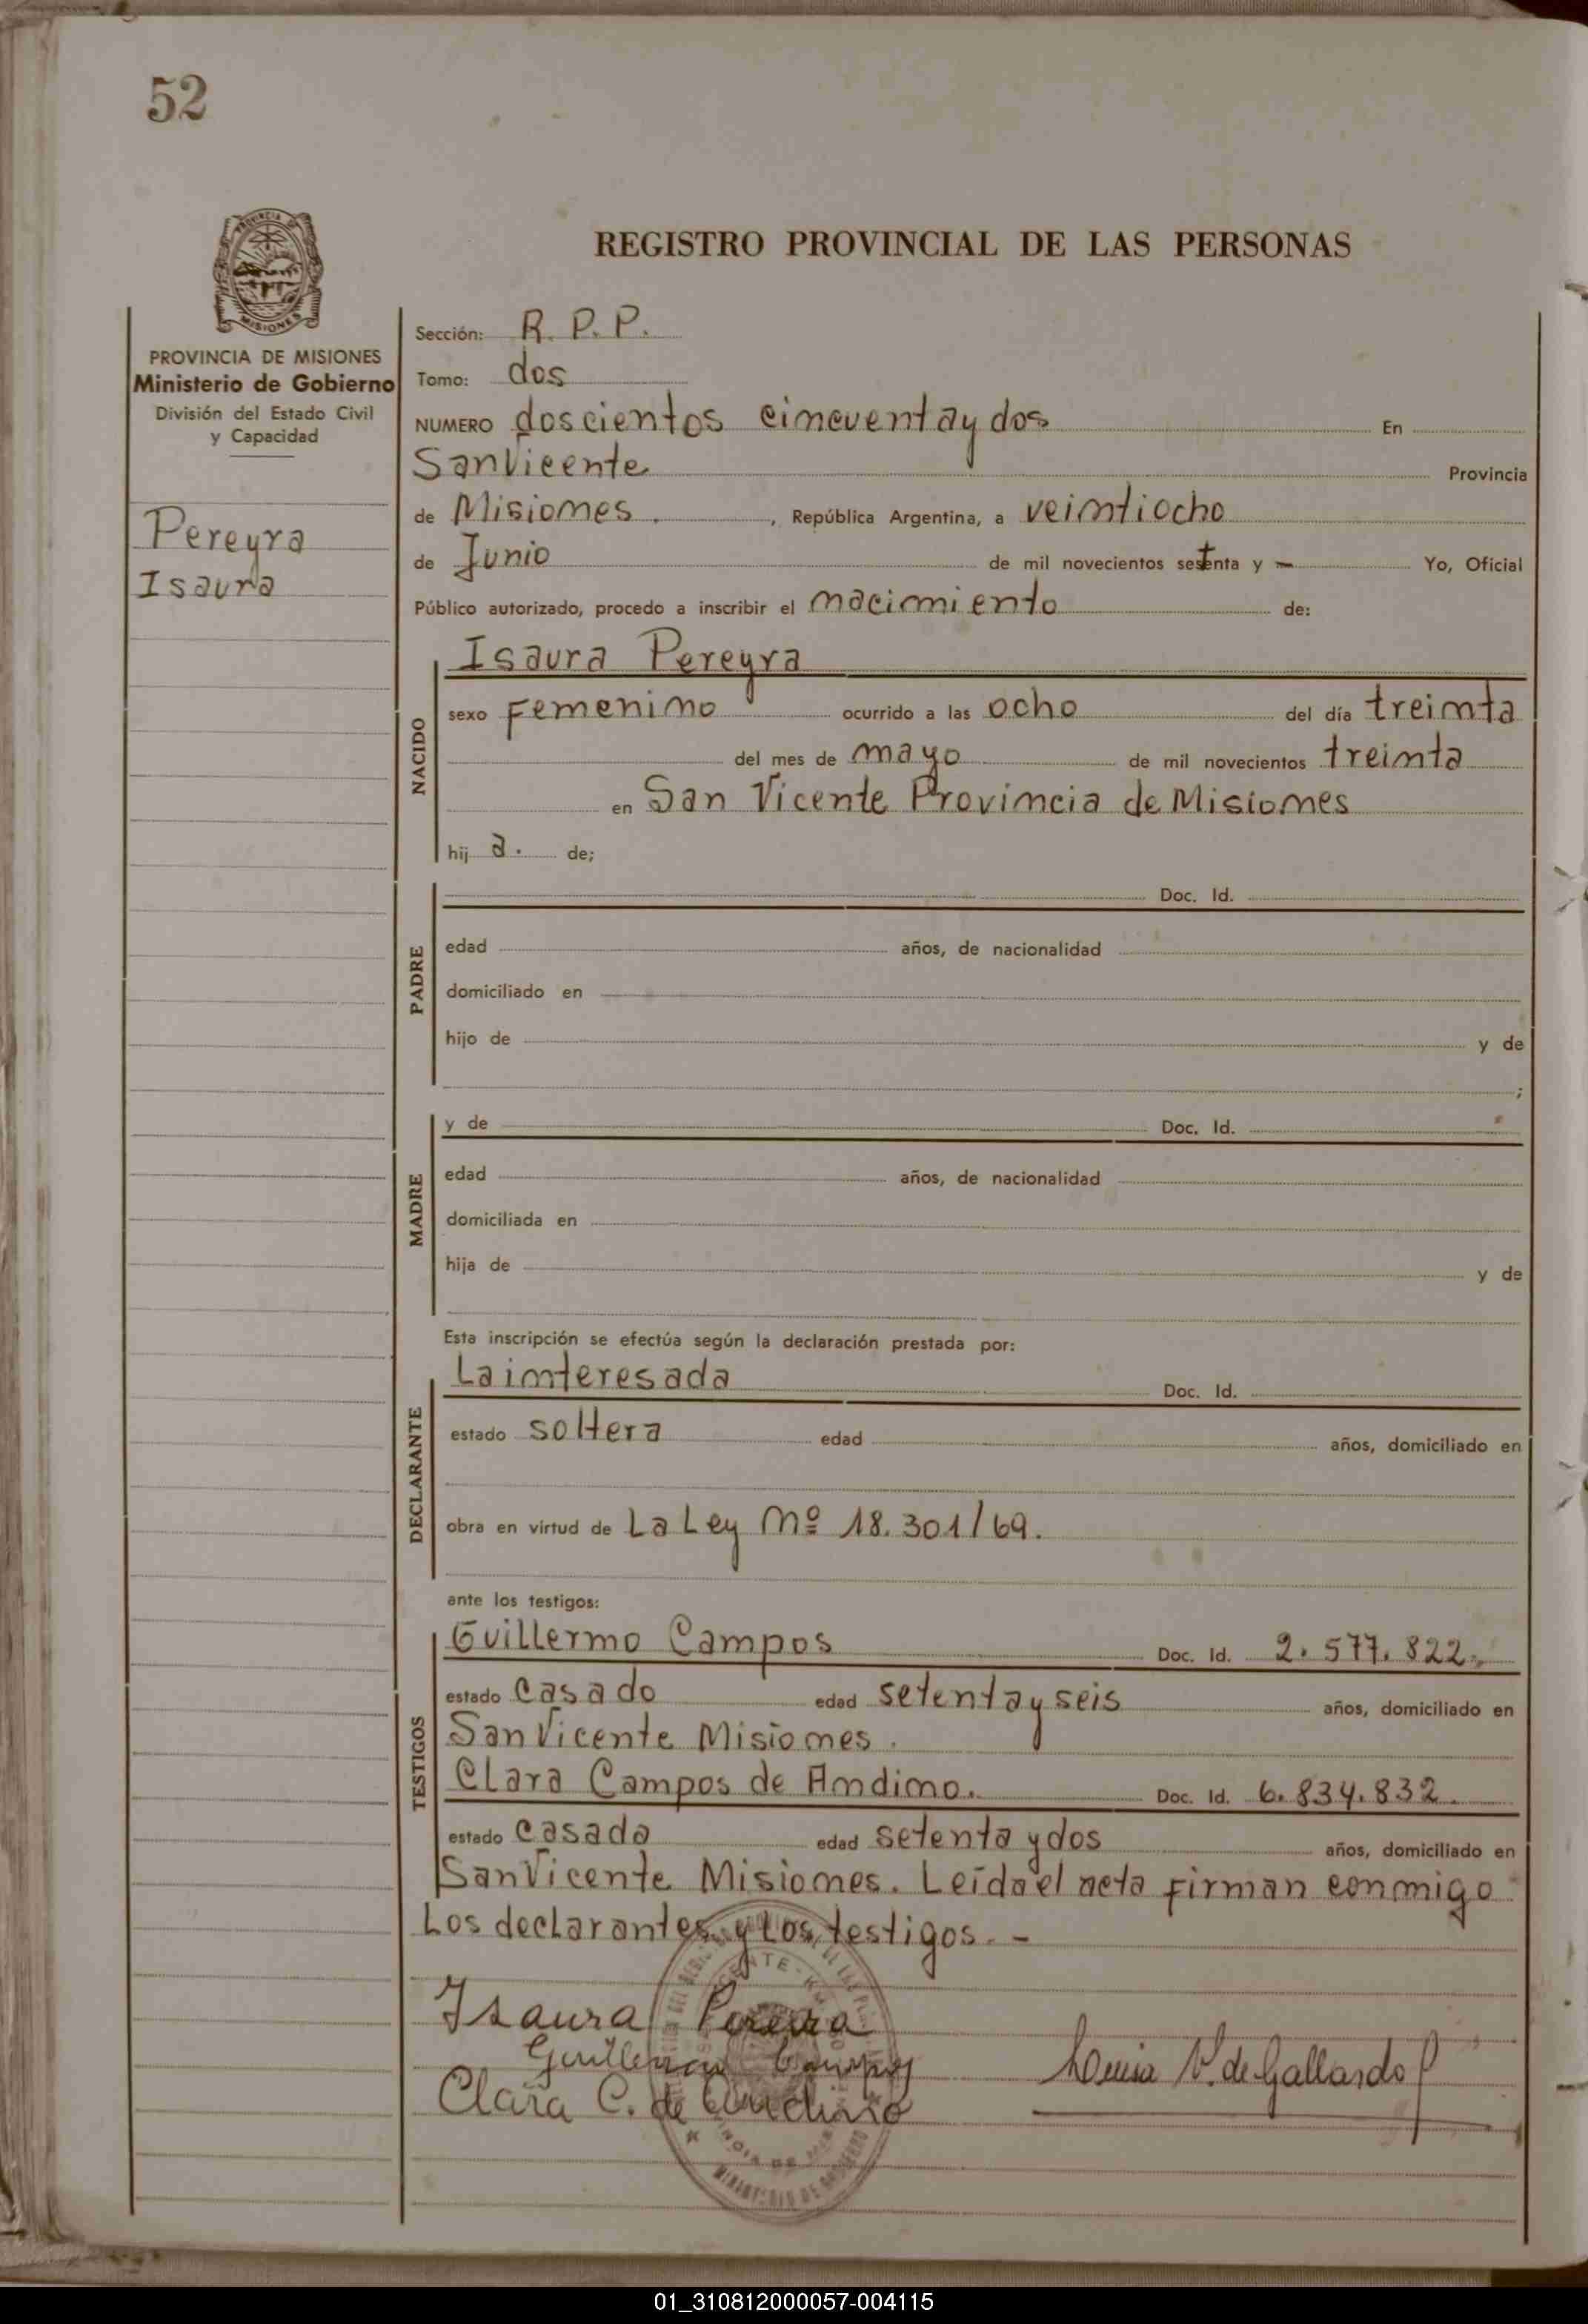 52
REGISTRO PROVINCIAL DE LAS PERSONAS
PROVINCIA DE MISIONES
Ministerio de Gobierno
División del Estado Civil
y Capacidad
Pereyra
Isaura
Sección: R. P. P.
Tomo: dos
NUMERO doscientos cincuenta y dos En
San Vicente Provincia
de Misiones. , República Argentina, a veintiocho
de Junio de mil novecientos setenta y — Yo, Oficial
Público autorizado, procedo a inscribir el nacimiento de:
NACIDO
Isaura Pereyra
sexo Femenino ocurrido a las ocho del día treinta
del mes de mayo de mil novecientos treinta
en San Vicente Provincia de Misiones
hij a. de;
PADRE
Doc. Id.
edad años, de nacionalidad
domiciliado en
hijo de y de
;
MADRE
y de Doc. Id.
edad años, de nacionalidad
domiciliada en
hija de y de
Esta inscripción se efectúa según la declaración prestada por:
DECLARANTE
La interesada Doc. Id.
estado soltera edad años, domiciliado en
obra en virtud de La Ley Nº 18.301/69.
ante los testigos:
TESTIGOS
Guillermo Campos Doc. Id. 2.577.822.
estado Casado edad setenta y seis años, domiciliado en
San Vicente Misiones.
Clara Campos de Andino. Doc. Id. 6.834.832.
estado Casada edad setenta y dos años, domiciliado en
San Vicente Misiones. Leída el acta firman conmigo
Los declarantes y los testigos. -
Isaura Pereira
Guillermo Campos
Clara C. de Andino
Luisa V. de Gallardo
MINISTERIO DE GOBIERNO
01_310812000057-004115